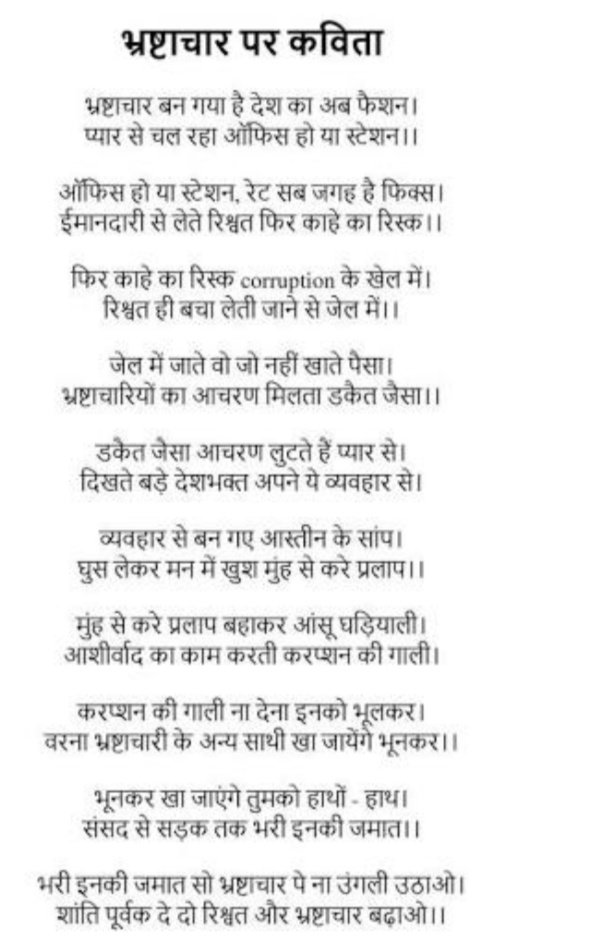 भ्रष्टाचार पर कविता
भ्रष्टाचार बन गया है देश का अब फैशन।
प्यार से चल रहा ऑफिस हो या स्टेशन।।
ऑफिस हो या स्टेशन, रेट सब जगह है फिक्स।
ईमानदारी से लेते रिश्वत फिर काहे का रिस्क।।
फिर काहे का रिस्क corruption के खेल में।
रिश्वत ही बचा लेती जाने से जेल में।।
जेल में जाते वो जो नहीं खाते पैसा।
भ्रष्टाचारियों का आचरण मिलता डकैत जैसा।।
डकैत जैसा आचरण लुटते हैं प्यार से।
दिखते बड़े देशभक्त अपने ये व्यवहार से।
व्यवहार से बन गए आस्तीन के सांप।
घुस लेकर मन में खुश मुंह से करे प्रलाप।।
मुंह से करे प्रलाप बहाकर आंसू घड़ियाली।
आशीर्वाद का काम करती करप्शन की गाली।
करप्शन की गाली ना देना इनको भूलकर।
वरना भ्रष्टाचारी के अन्य साथी खा जायेंगे भूनकर।।
भूनकर खा जाएंगे तुमको हाथों - हाथ।
संसद से सड़क तक भरी इनकी जमात।।
भरी इनकी जमात सो भ्रष्टाचार पे ना उंगली उठाओ।
शांति पूर्वक दे दो रिश्वत और भ्रष्टाचार बढ़ाओ।।